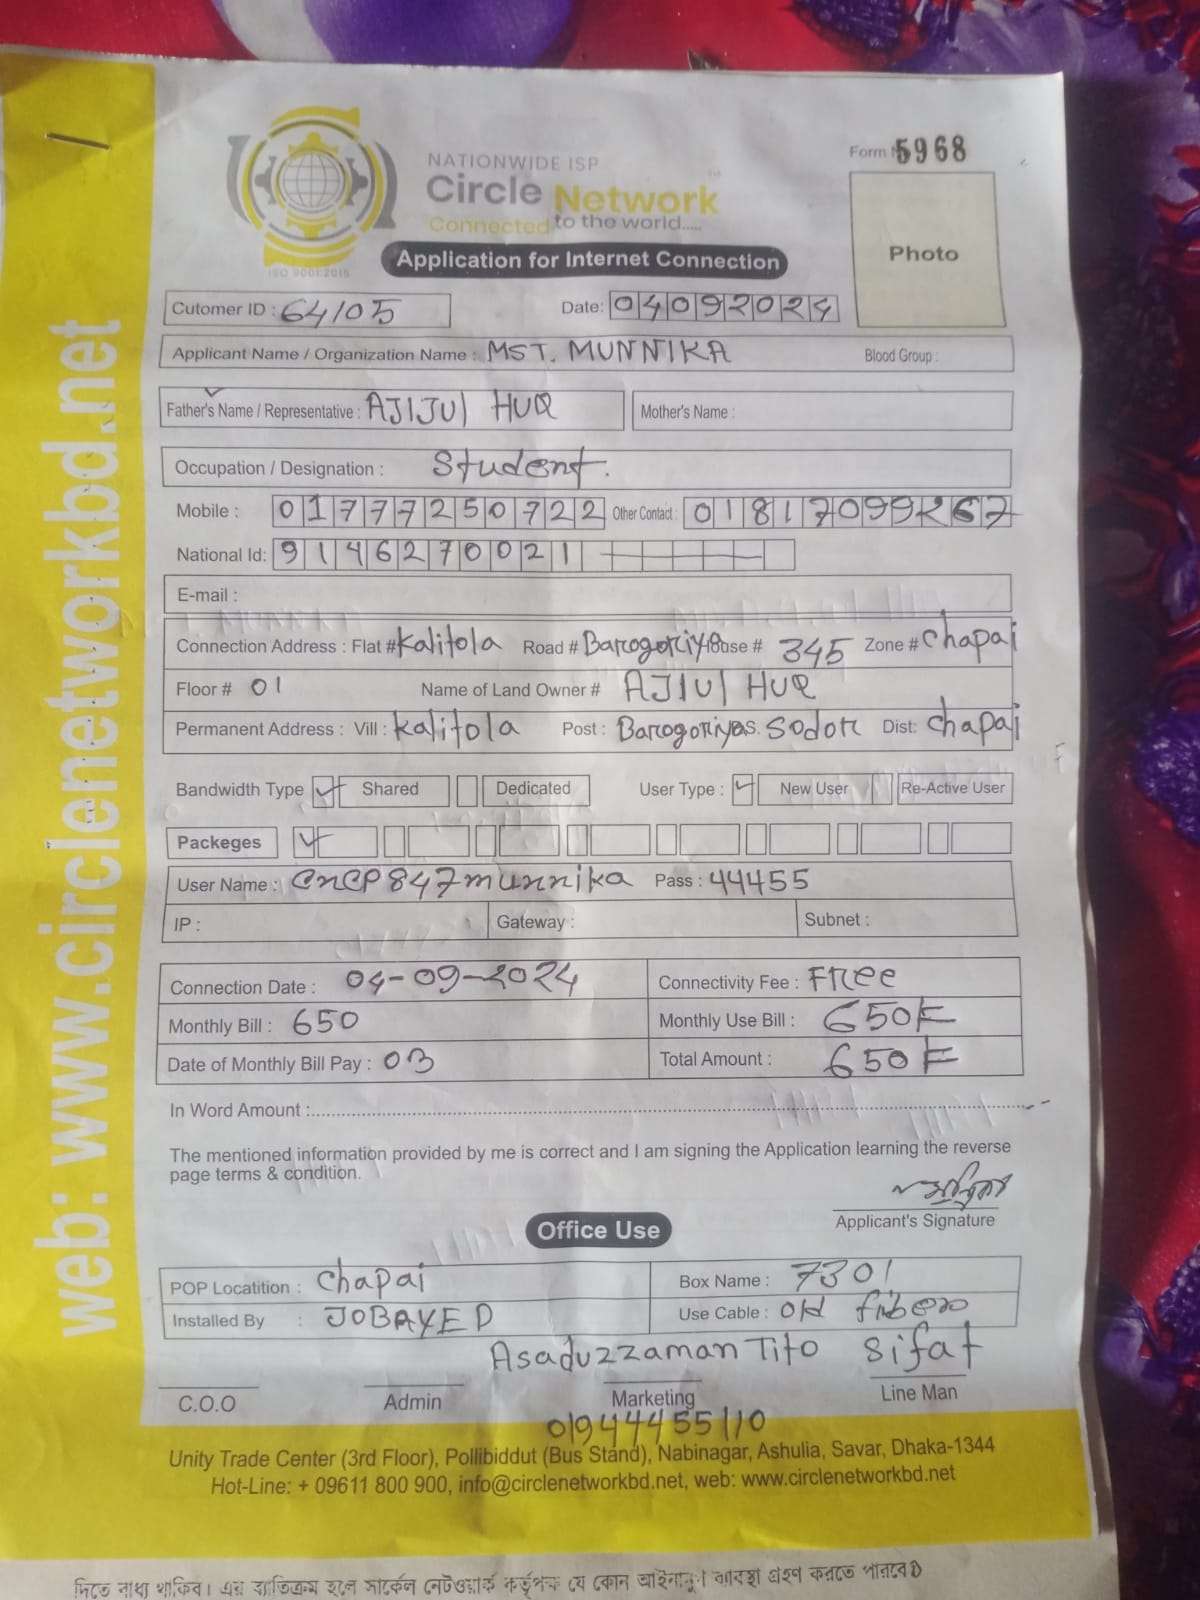 web: www.circlenetworkbd.net
NATIONWIDE ISP
Circle Network
Connected to the world.....
ISO 9001:2015
Form 5968
Photo
Application for Internet Connection
Cutomer ID : 64105 Date: 04092024
Applicant Name / Organization Name : MST. MUNNIKA Blood Group :
Father's Name / Representative : AJIJUl HUQ Mother's Name :
Occupation / Designation : Student.
Mobile : 01777250722 Other Contact : 01817099267
National Id: 9146270021
E-mail :
Connection Address : Flat # Kalitola Road # Barogoriya # 345 Zone # Chapai
Floor # 01 Name of Land Owner # AJIUl HUQ
Permanent Address : Vill : Kalitola Post : Barogoriya Sodor Dist: Chapai
Bandwidth Type Shared Dedicated User Type : New User Re-Active User
Packeges
User Name : CNCP847munnika Pass : 44455
IP : Gateway : Subnet :
Connection Date : 04-09-2024 Connectivity Fee : Free
Monthly Bill : 650 Monthly Use Bill : 650
Date of Monthly Bill Pay : 03 Total Amount : 650
In Word Amount :
The mentioned information provided by me is correct and I am signing the Application learning the reverse
page terms & condition.
Applicant's Signature
Office Use
POP Locatition : Chapai Box Name : 7301
Installed By : JOBAYED Use Cable : Old fiber
Asaduzzaman Tito Sifat
C.O.O Admin Marketing Line Man
01944455110
Unity Trade Center (3rd Floor), Pollibiddut (Bus Stand), Nabinagar, Ashulia, Savar, Dhaka-1344
Hot-Line: + 09611 800 900, info@circlenetworkbd.net, web: www.circlenetworkbd.net
দিতে বাধ্য থাকিব। এর ব্যতিক্রম হলে সার্কেল নেটওয়ার্ক কর্তৃপক্ষ যে কোন আইনানুগ ব্যবস্থা গ্রহণ করতে পারবে।